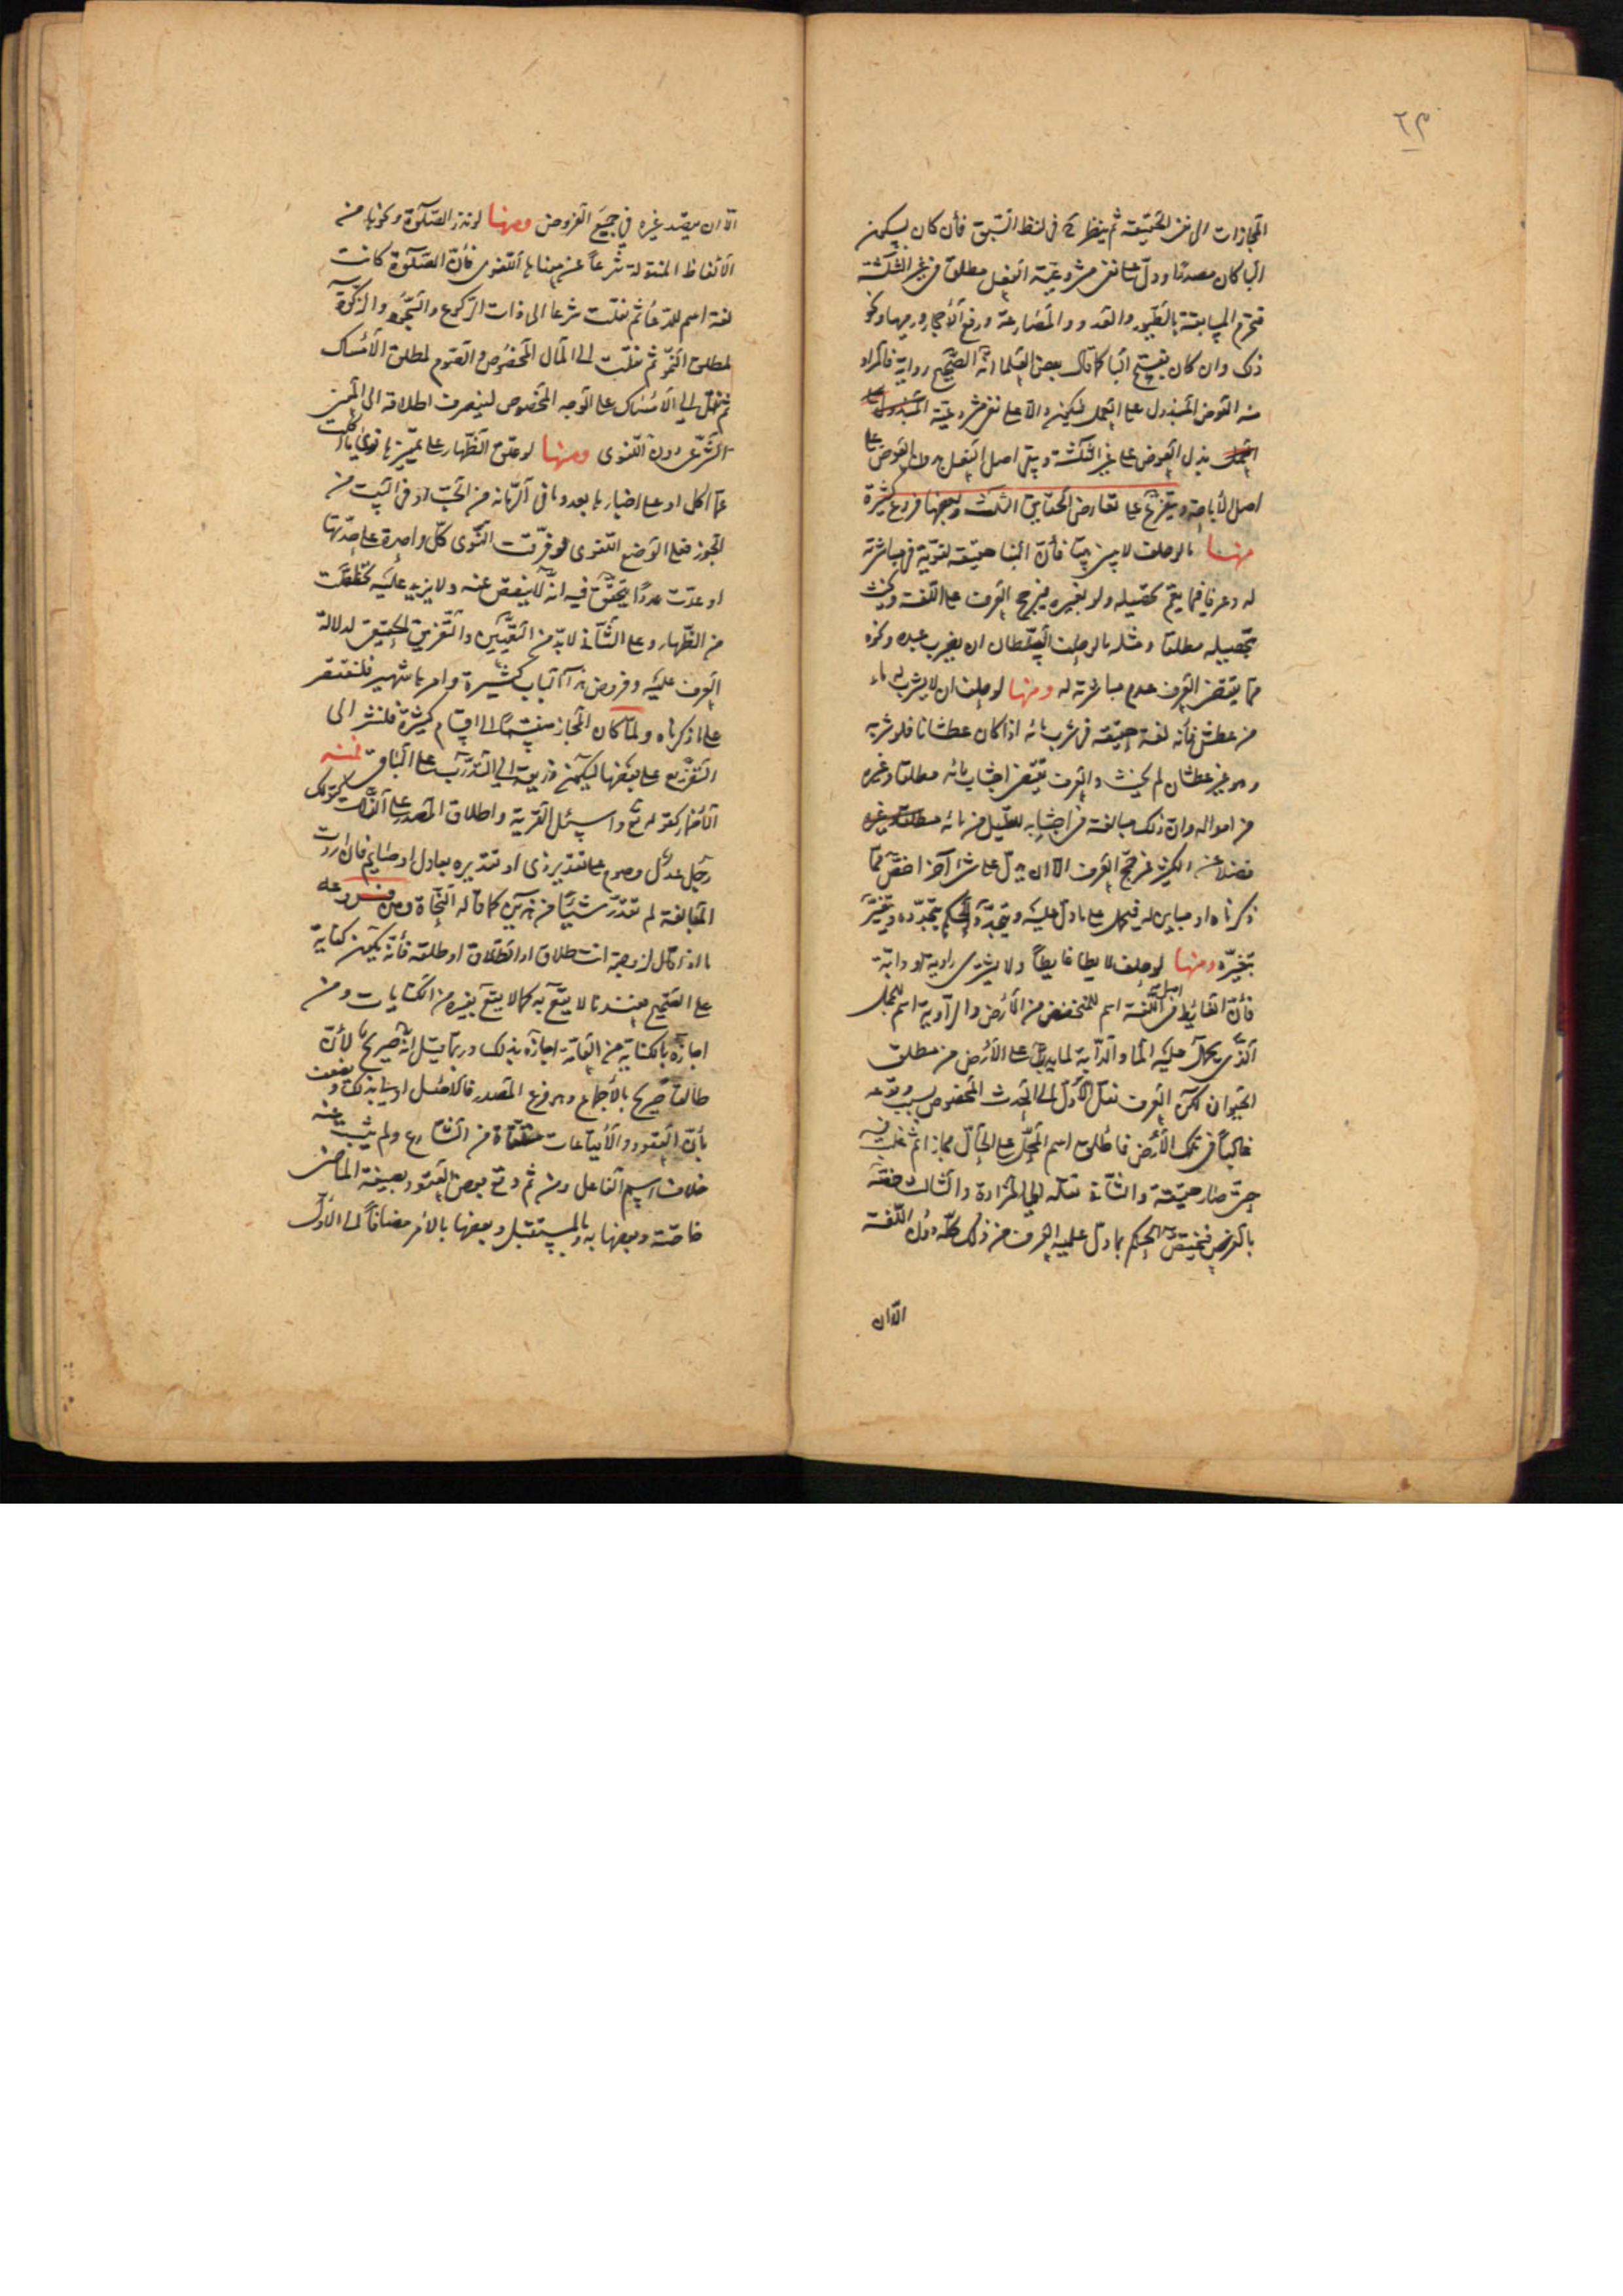 ٢٣
المجازات الى نفى الحقيقة ثم ينظر ح فى لفظ السبق فأن كان بسكون
البا كان مصدرا ودل على نفى مشروعية الفعل مطلقا فى غير الثلثة
فتحرم المسابقة بالطيور والعدو والمصارعة ورفع الأحجار ورميها ونحو
ذلك وان كان بفتح البا كما قال بعض العلما انه الصحيح رواية فالمراد
منه العوض المبذول على العمل فيكون دالا على نفى مشروعية المبذول على
العمل بذل العوض على غير الثلثة ويبقى اصل الفعل بدون العوض على
اصل الأباحة ويتفرع على تعارض الحقايق الثلث وبعضها فروع كثيرة
منها ما لو حلف لا يبنى بيتا فأن البنا حقيقة لغوية فى مباشرته
له وعرفا فيما يعم تحصيله ولو بغيره فيرجح العرف على اللغة ويحنث
بتحصيله مطلقا ومثله ما لو حلف السلطان ان يضرب عبده ونحوه
مما يقتضى العرف عدم مباشرته له ومنها لو حلف ان لا يشرب له ماء
من عطش فأنه لغة حقيقة فى شرب مائه اذا كان عطشانا فلو شربه
وهو غير عطشان لم يحنث والعرف يقتضى اجتناب مائه مطلقا وغيره
من امواله وان ذلك مبالغة فى اجتنابه للقليل من مائه مطلقا وغيره
فضلا عن الكثير فيرجح العرف الا ان يدل على شى آخر اخص مما
ذكرناه او مباين له فيحمل على ما دل عليه ويتجدد الحكم بتجدده ويتغير
بتغيره ومنها لو حلف لا يطا غايطا ولا يشترى راوية او دابة
فأن الغائط فى اصل اللغة اسم للمنخفض من الأرض والراوية اسم للجمل
الذى يحمل عليه الما والدابة لما يدب على الأرض من مطلق
الحيوان لكن العرف نقل الأول الى الحدث المخصوص بسبب وقوعه
غالبا فى تلك الأرض فاطلق اسم المحل على الحال مجازا ثم غلب فيه
حتى صار حقيقة والثانى نقله الى المزادة والثالث خصه
بالفرس فيختص الحكم بما دل عليه العرف من ذلك كله دون اللغة
الا ان
الا ان يقصد غيره فى جميع الفروض ومنها لو نذر الصلوة ونحوها من
الألفاظ المنقولة شرعا عن معناها اللغوى فأن الصلوة كانت
لغة اسم للدعا ثم نقلت شرعا الى ذات الركوع والسجود والزكوة
لمطلق النمو ثم نقلت الى المال المخصوص والصوم لمطلق الأمساك
ثم نقل الى الأمساك على الوجه المخصوص لينصرف اطلاقه الى المعنى
الشرعى دون اللغوى ومنها لو علق الظهار على تمييزها نوى ما اكلت
عما اكل او على اخبارها بعدد ما فى الرمانة من الحب او فى البيت من
الجوز فعلى الوضع اللغوى لو فرقت النوى كل واحدة على حدتها
او عدت عددا يتحقق فيه انه لا ينقص عنه ولا يزيد عليه تخلصت
من الظهار وعلى الثانى لا بد من التعيين والتفريق الحقيقى لدلالة
العرف عليه وفروض هذا الباب كثيرة وامرها شهير فلنقتصر
على ما ذكرناه ولما كان المجاز منقسما الى اقسام كثيرة فلنشر الى
التفريع على بعضها ليكون ذريعة الى التدرب على الباقى فمنه
الأضمار كقوله تع واسئل القرية واطلاق المصدر على الذات كقولك
رجل عدل وصوم على تقدير ذى او تقديره بعادل او صايم فان اردت
المبالغة لم تقدر شيئا من هذين كما قاله النحاة ومن فروعه
ما اذا قال لزوجته انت طلاق او الطلاق او طلقة فأنه يكون كناية
على الصحيح فعندنا لا يقع به كما لا يقع بغيره من الكنايات ومن
اجازه بالكناية من العامة اجازه بذلك وربما قيل انه صريح لأن
طالقا صريح بالأجماع وهو فرع المصدر فالأصل اولى بذلك ويضعف
بأن العقود والأيقاعات متلقاة من الشارع ولم يثبت عنه
خلاف اسم الفاعل ومن ثم وقع بعض العقود بصيغة الماضى
خاصة وبعضها به وبالمستقبل وبعضها بالأمر مضافا الى الأول